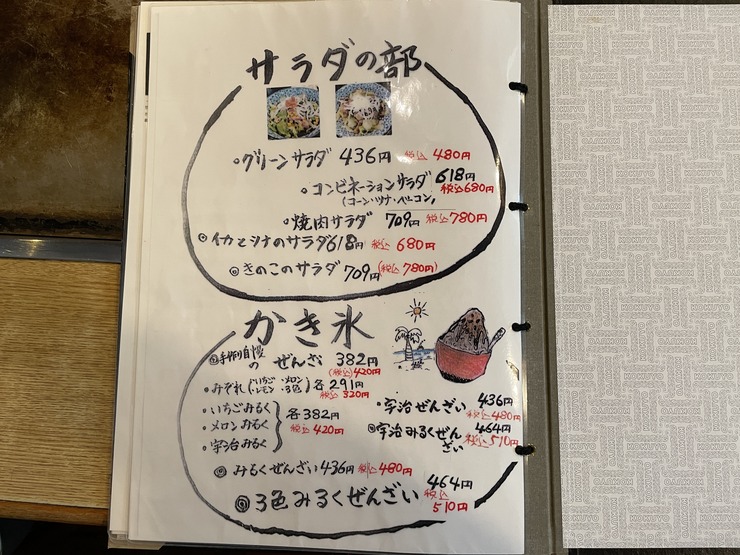 サラダの部
・グリーンサラダ 436円 税込 480円
・コンビネーションサラダ 618円 税込680円
(コーン・ツナ・ベーコン)
・焼肉サラダ 709円 税込 780円
◎イカとツナのサラダ618円 税込 680円
◎きのこのサラダ709円(税込 780円)
かき氷
◎手作り自慢の ぜんざい 382円
(税込)420円
・みぞれ(・いちご ・メロン ・レモン ・3色)各291円
税込 320円
・いちごみるく
・メロンみるく
・宇治みるく
各382円
税込 420円
・宇治ぜんざい 436円
税込480円
◎宇治みるくぜんざい 464円
税込510円
◎みるくぜんざい436円 税込 480円
◎3色みるくぜんざい 464円
税込 510円